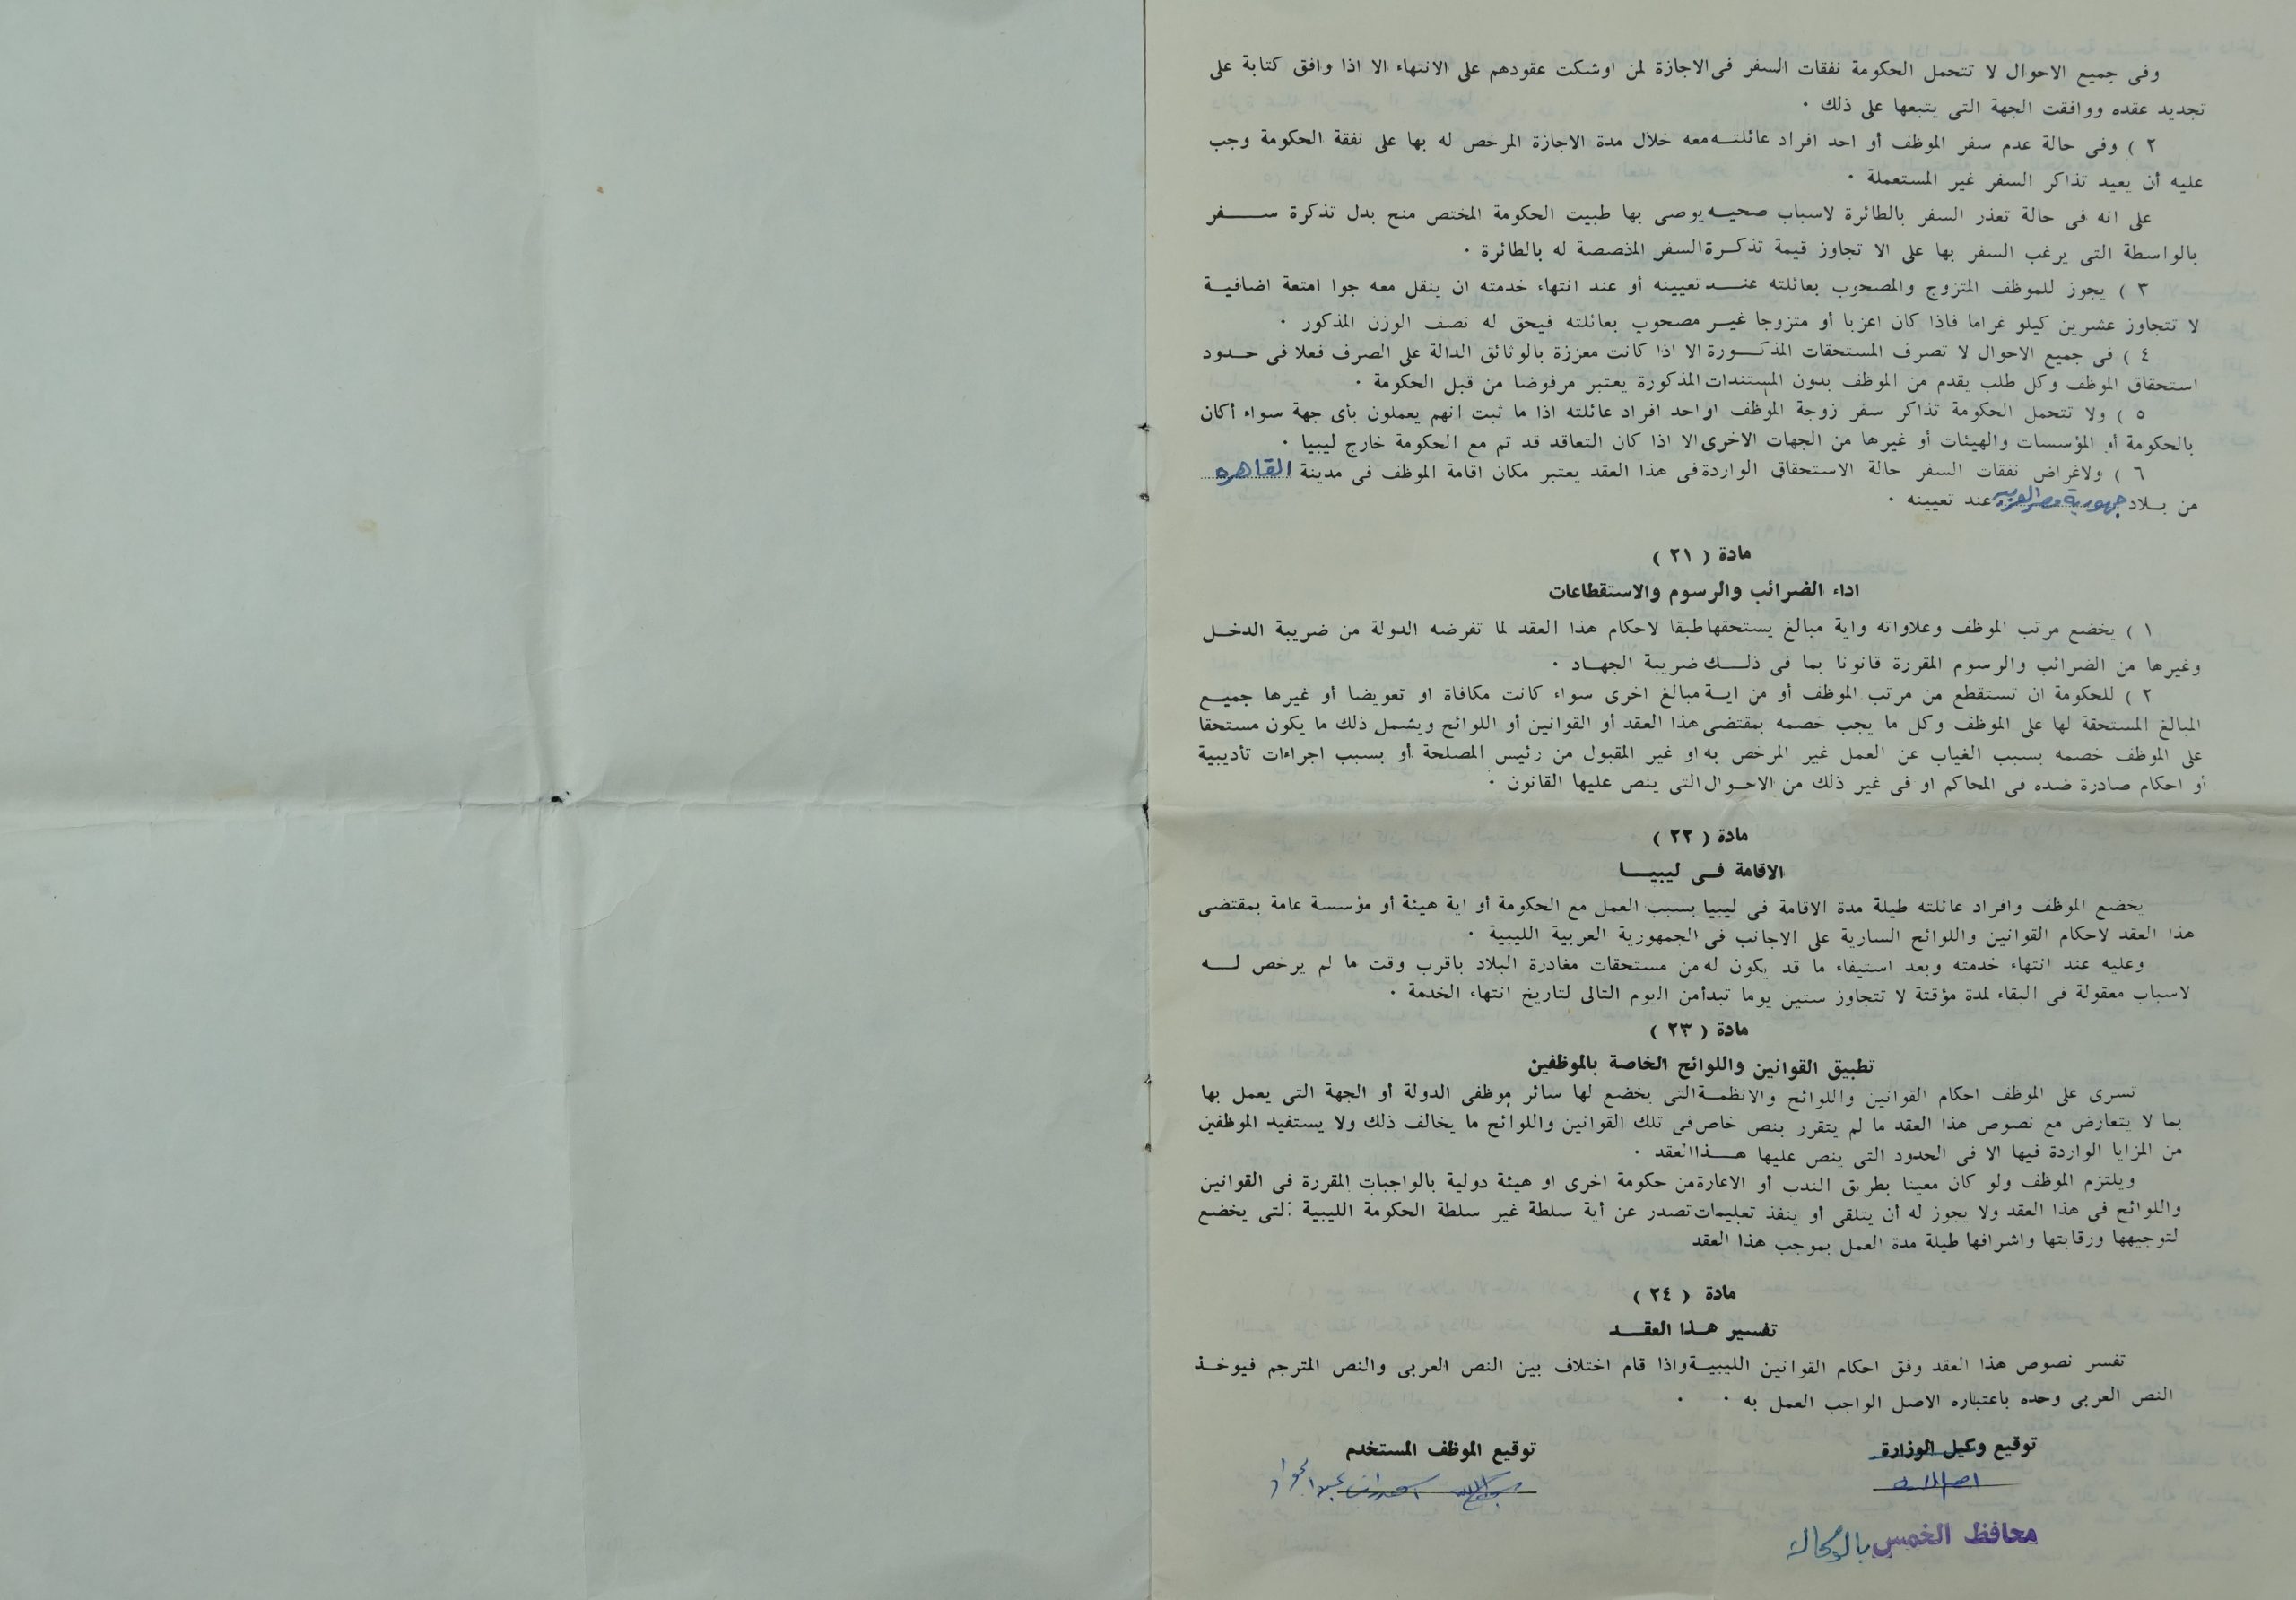 وفى جميع الاحوال لا تتحمل الحكومة نفقات السفر فى الاجازة لمن اوشكت عقودهم على الانتهاء الا اذا وافق كتابة على
تجديد عقده ووافقت الجهة التى يتبعها على ذلك ٠
٢ ) وفى حالة عدم سفر الموظف أو احد افراد عائلتــه معه خلال مدة الاجازة المرخص له بها على نفقة الحكومة وجب
عليه أن يعيد تذاكر السفر غير المستعملة ٠
على انه فى حالة تعذر السفر بالطائرة لاسباب صحيــه يوصى بها طبيت الحكومة المختص منح بدل تذكرة ســـــفر
بالواسطة التى يرغب السفر بها على الا تجاوز قيمة تذكــرة السفر المذصصة له بالطائرة ٠
٣ ) يجوز للموظف المتزوج والمصحوب بعائلته عنـــد تعيينه أو عند انتهاء خدمته ان ينقل معه جوا امتعة اضافيــة
لا تتجاوز عشرين كيلو غراما فاذا كان اعزبا أو متزوجا غيــر مصحوب بعائلته فيحق له نصف الوزن المذكور ٠
٤ ) فى جميع الاحوال لا تصرف المستحقات المذكـــورة الا اذا كانت معززة بالوثائق الدالة على الصرف فعلا فى حــدود
استحقاق الموظف وكل طلب يقدم من الموظف بدون المستندات المذكورة يعتبر مرفوضا من قبل الحكومة ٠
٥ ) ولا تتحمل الحكومة تذاكر سفر زوجة الموظف او احد افراد عائلته اذا ما ثبت انهم يعملون بأى جهة سواء أكان
بالحكومة أو المؤسسات والهيئات أو غيرها من الجهات الاخرى الا اذا كان التعاقد قد تم مع الحكومة خارج ليبيا ٠
٦ ) ولاغراض نفقات السفر حالة الاستحقاق الواردة فى هذا العقد يعتبر مكان اقامة الموظف فى مدينة القاهره
من بــلاد جمهورية مصر العربيه عند تعيينه ٠
مادة ( ٢١ )
اداء الضرائب والرسوم والاستقطاعات
١ ) يخضع مرتب الموظف وعلاواته واية مبالغ يستحقها طبقا لاحكام هذا العقد لما تفرضه الدولة من ضريبة الدخــل
وغيرها من الضرائب والرسوم المقررة قانونا بما فى ذلــك ضريبة الجهــاد ٠
٢ ) للحكومة ان تستقطع من مرتب الموظف أو من ايــة مبالغ اخرى سواء كانت مكافاة او تعويضا أو غيرها جميــع
المبالغ المستحقة لها على الموظف وكل ما يجب خصمه بمقتضى هذا العقد أو القوانين أو اللوائح ويشمل ذلك ما يكون مستحقا
على الموظف خصمه بسبب الغياب عن العمل غير المرخص به او غير المقبول من رئيس المصلحة أو بسبب اجراءات تأديبية
أو احكام صادرة ضده فى المحاكم او فى غير ذلك من الاحــوال التى ينص عليها القانون ٠
مادة ( ٢٢ )
الاقامة فــى ليبيـــا
يخضع الموظف وافراد عائلته طيلة مدة الاقامة فى ليبيا بسبب العمل مع الحكومة أو اية هيئة أو مؤسسة عامة بمقتضى
هذا العقد لاحكام القوانين واللوائح السارية على الاجانب فى الجمهورية العربية الليبية ٠
وعليه عند انتهاء خدمته وبعد استيفاء ما قد يكون له من مستحقات مغادرة البلاد باقرب وقت ما لم يرخص لـــه
لاسباب معقولة فى البقاء لمدة مؤقتة لا تتجاوز ستين يوما تبدأ من اليوم التالى لتاريخ انتهاء الخدمة ٠
مادة ( ٢٣ )
تطبيق القوانين واللوائح الخاصة بالموظفين
تسرى على الموظف احكام القوانين واللوائح والانظمــة التى يخضع لها سائر موظفى الدولة أو الجهة التى يعمل بها
بما لا يتعارض مع نصوص هذا العقد ما لم يتقرر بنص خاص فى تلك القوانين واللوائح ما يخالف ذلك ولا يستفيد الموظفين
من المزايا الواردة فيها الا فى الحدود التى ينص عليها هـــذا العقد ٠
ويلتزم الموظف ولو كان معينا بطريق الندب أو الاعارة من حكومة اخرى او هيئة دولية بالواجبات المقررة فى القوانين
واللوائح فى هذا العقد ولا يجوز له أن يتلقى أو ينفذ تعليمات تصدر عن أية سلطة غير سلطة الحكومة الليبية التى يخضع
لتوجيهها ورقابتها واشرافها طيلة مدة العمل بموجب هذا العقد
مادة ( ٢٤ )
تفسير هــذا العقــد
تفسر نصوص هذا العقد وفق احكام القوانين الليبيــة واذا قام اختلاف بين النص العربى والنص المترجم فيوخــذ
النص العربى وحده باعتباره الاصل الواجب العمل به ٠ ٠
توقيع وكيل الوزارة
توقيع الموظف المستخدم
عبد الجواد
محافظ الخمس بالوكالة